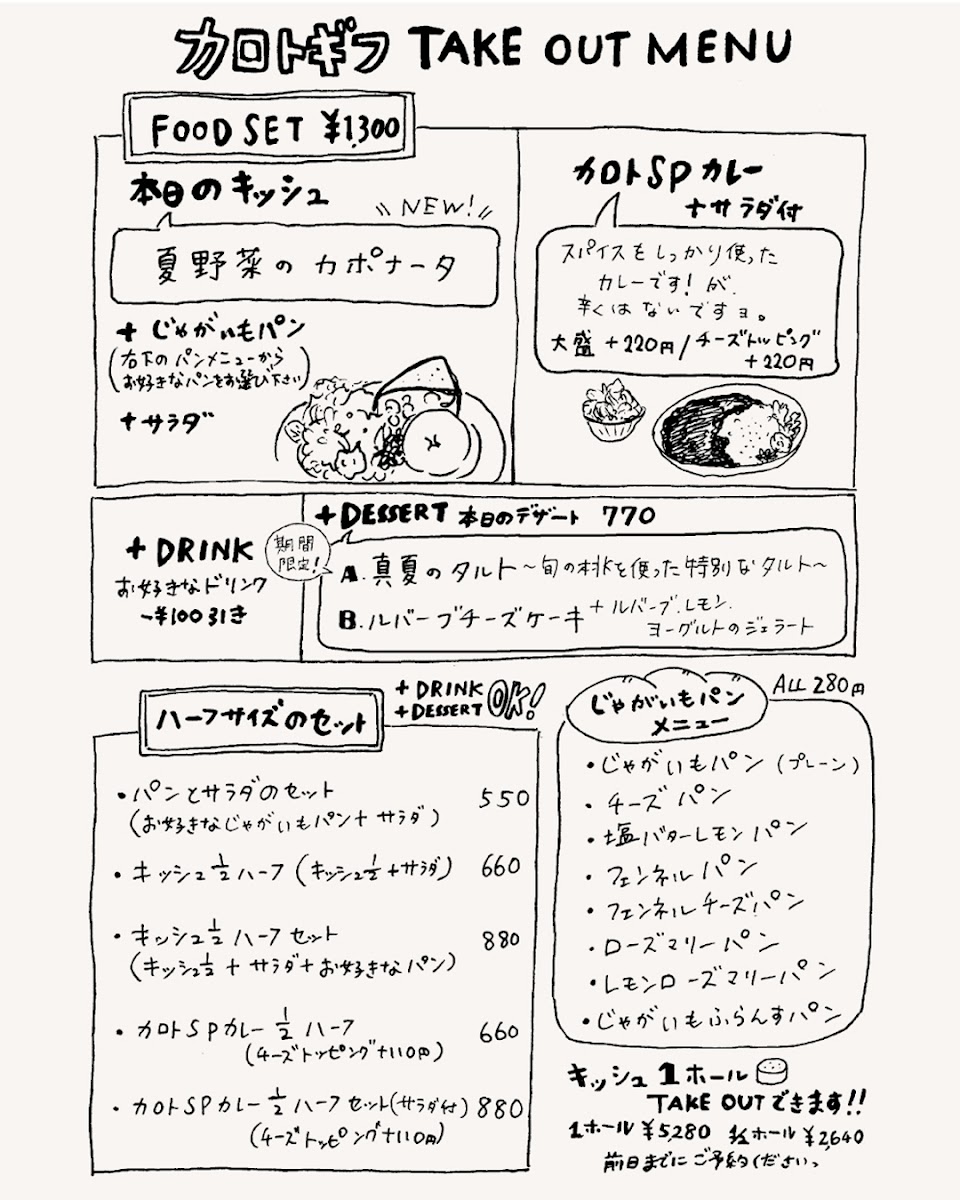 カロトギフ TAKE OUT MENU
FOOD SET ¥1,300
本日のキッシュ
NEW!
夏野菜のカポナータ
+ じゃがいもパン
(右下のパンメニューから
お好きなパンをお選び下さい)
+サラダ
カロトSPカレー
+サラダ付
スパイスをしっかり使った
カレーです!が、
辛くはないですョ。
大盛 +220円/チーズトッピング
+220円
+DRINK
お好きなドリンク
-¥100引き
期間
限定!
+DESSERT 本日のデザート 770
A.真夏のタルト~旬の桃を使った特別なタルト~
B.ルバーブチーズケーキ+ルバーブ、レモン、
ヨーグルトのジェラート
ハーフサイズのセット
+DRINK
+DESSERT OK!
・パンとサラダのセット 550
(お好きなじゃがいもパン+サラダ)
・キッシュ1/2ハーフ(キッシュ1/2+サラダ) 660
・キッシュ1/2ハーフセット 880
(キッシュ1/2+サラダ+お好きなパン)
・カロトSPカレー1/2ハーフ 660
(チーズトッピング+110円)
・カロトSPカレー1/2ハーフセット(サラダ付) 880
(チーズトッピング+110円)
じゃがいもパン
メニュー
ALL 280円
・じゃがいもパン(プレーン)
・チーズパン
・塩バターレモンパン
・フェンネルパン
・フェンネルチーズパン
・ローズマリーパン
・レモンローズマリーパン
・じゃがいもふらんすパン
キッシュ1ホール
TAKE OUTできます!!
1ホール¥5,280 1/2ホール¥2,640
前日までにご予約ください。